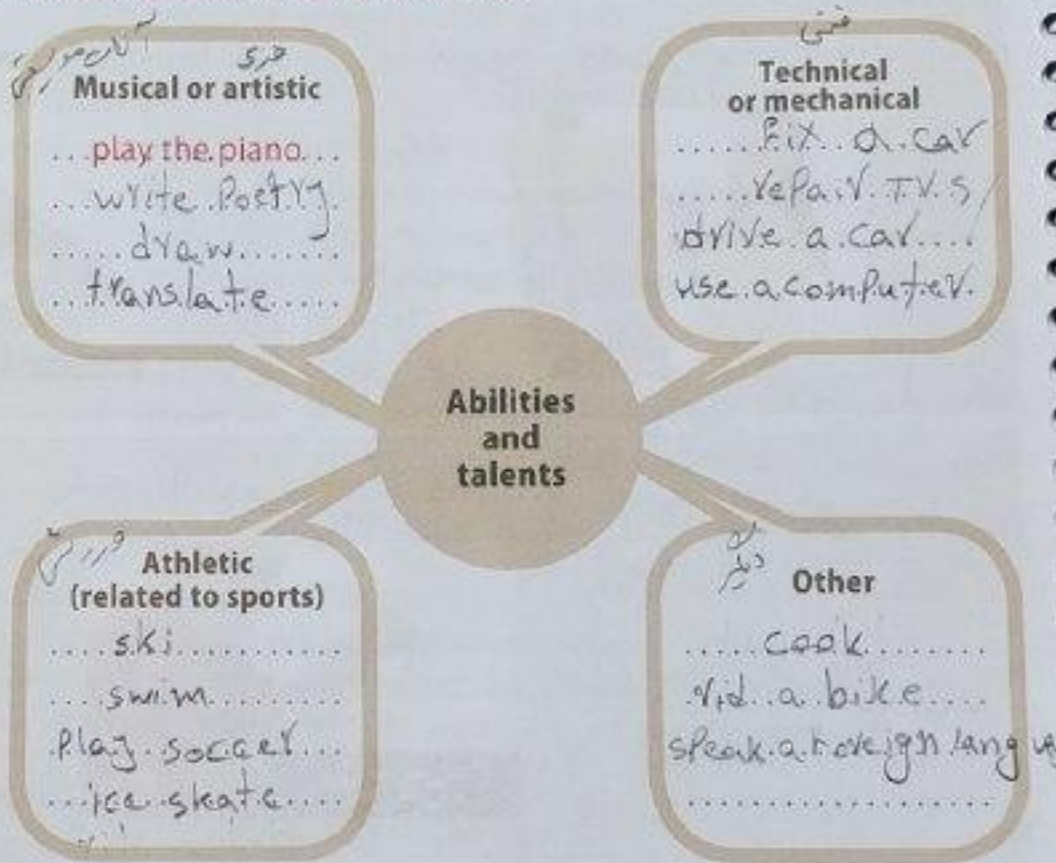 هنری
Musical or artistic
play the piano
write Poetry
draw
translate
فنی
Technical
or mechanical
fix a car
repair TVs
drive a car
use a computer
Abilities
and
talents
ورزشی
Athletic
(related to sports)
ski
swim
Play soccer
ice skate
دیگر
Other
cook
rid a bike
speak a foreign lang